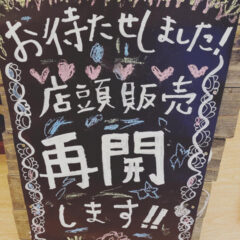 お待たせしました!
店頭販売
再開
します!!